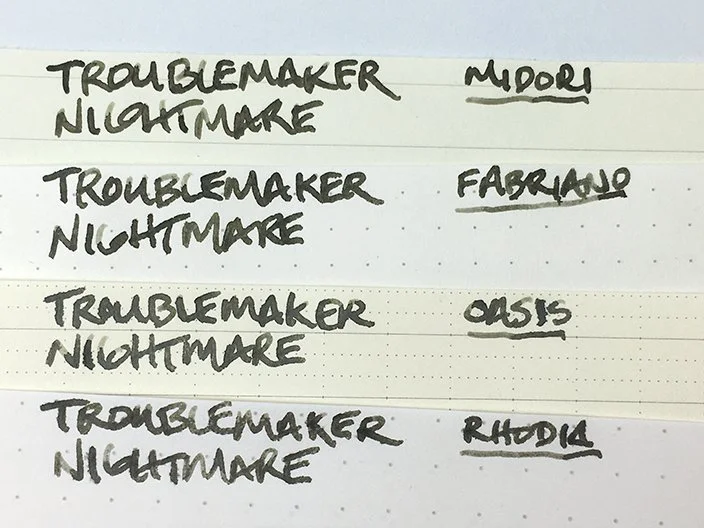 TROUBLEMAKER MIDORI
NIGHTMARE
TROUBLEMAKER FABRIANO
NIGHTMARE
TROUBLEMAKER OASIS
NIGHTMARE
TROUBLEMAKER RHODIA
NIGHTMARE